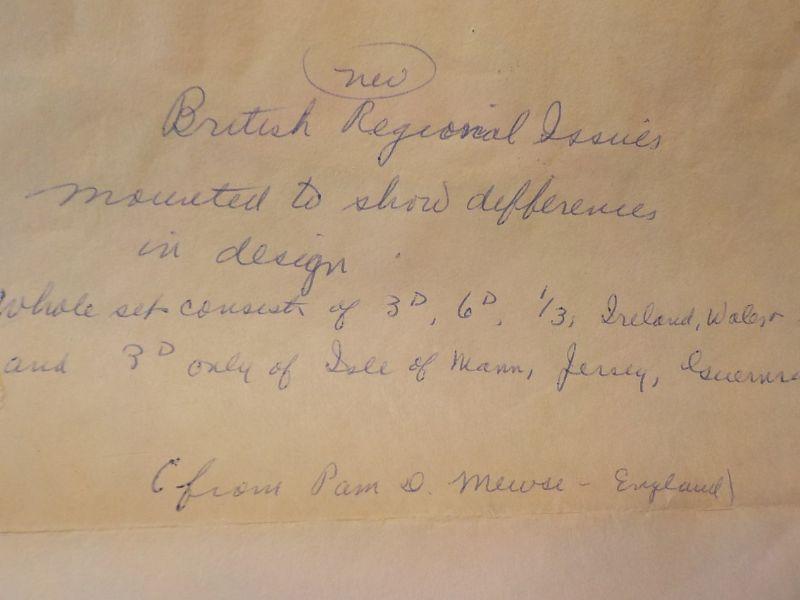 new
British Regional Issues
mounted to show differences
in design
Whole set consists of 3D, 6D, 1/3, Ireland, Wales +
and 3D only of Isle of Mann, Jersey,
(from Pam D. Mewse - England)